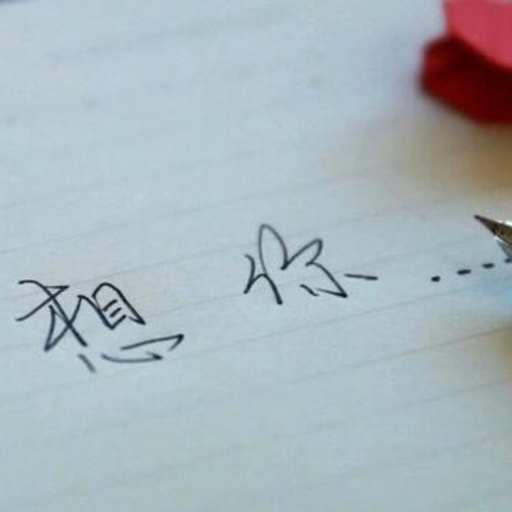 想你……